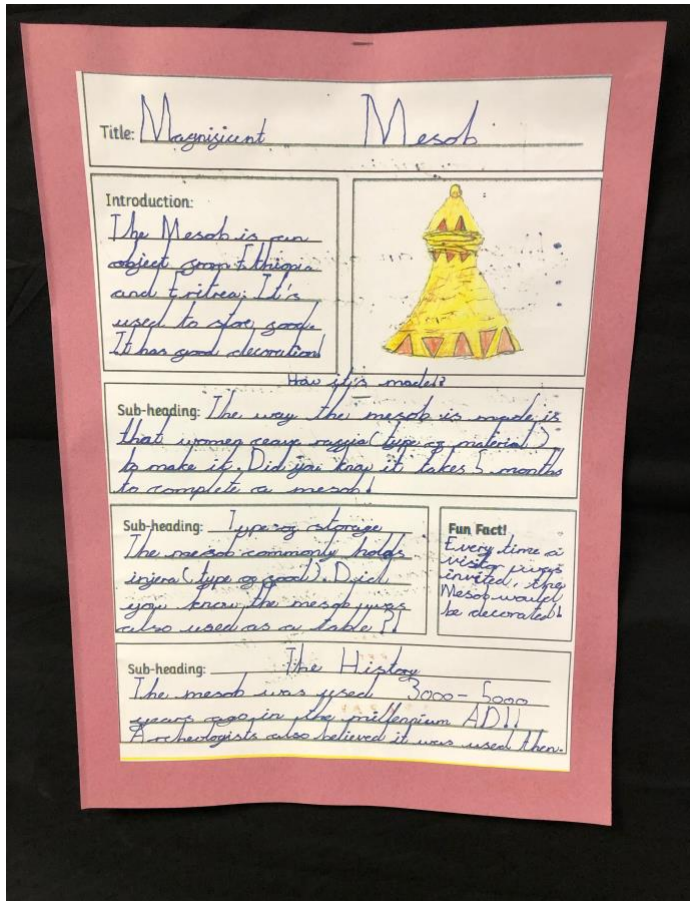 Title: Magnificent Mesob
Introduction:
The Mesob is an
object from Ethiopia
and Eritrea. It's
used to store food.
It has good decoration!
How it's made?
Sub-heading: The way the mesob is made is
that women weave raffia (type of material)
to make it. Did you know it takes 5 months
to complete a mesob!
Sub-heading: Types of storage
The mesob commonly holds
injera (type of food). Did
you know the mesob was
also used as a table?!
Fun Fact!
Every time a
visitor was
invited, the
Mesob would
be decorated!
Sub-heading: The History
The mesob was used 3000-5000
years ago in the millennium AD!!
Archeologists also believed it was used then.